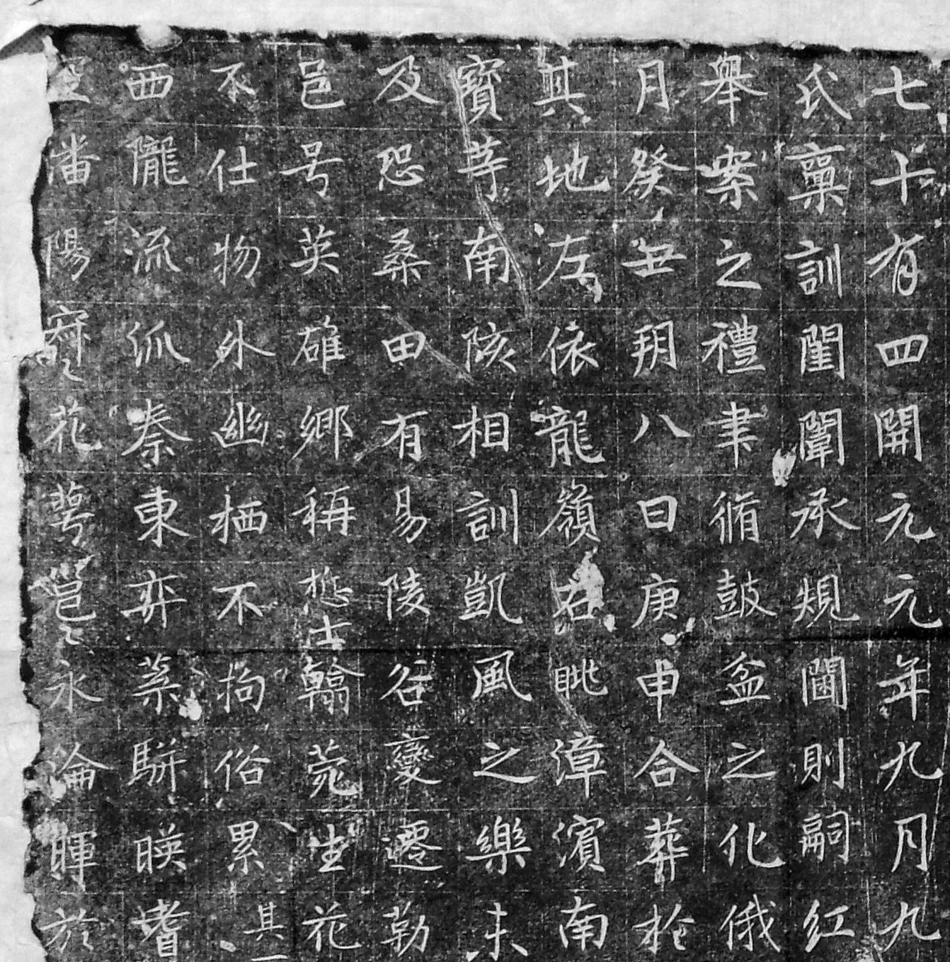 七十有四開元元年九月九
氏稟訓閨闈承規閫則嗣紅
舉案之禮聿脩鼓盆之化俄
月癸丑朔八日庚申合葬於
其地左依龍嶺右眺漳濱南
寶等南陔相訓凱風之樂未
及恐桑田有易陵谷變遷勒
邑号英雄鄉稱懋士翰菀生花
不仕物外幽栖不拘俗累其一
西隴流派秦東弈葉駢暎耆
潘陽寂〻花萼〻永淪暉於